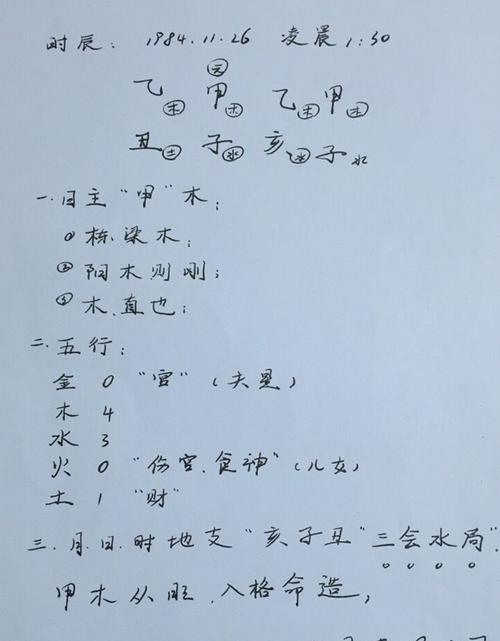 时辰: 1984.11.26 凌晨1:30
元
乙木 甲木 乙木 甲木
丑土 子水 亥水 子水
一.日主“甲”木;
①栋梁木;
②阳木则刚;
③木.直也;
二.五行:
金 0 “官”(夫星)
木 4
水 3
火 0 “伤官.食神”(儿女)
土 1 “财”
三.月.日.时地支“亥子丑”三会水局”.
甲木从旺.入格命造,